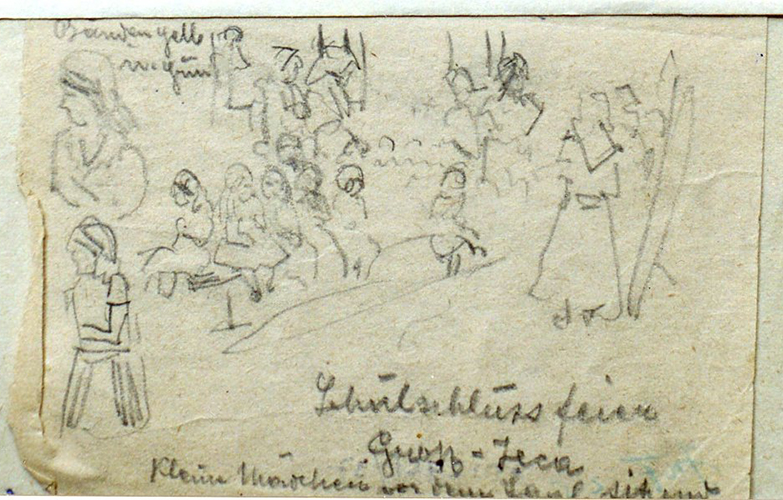 Banden gelb
u. grün
Schulschluss feier
Gross-Jeca
Kleine Mädchen vor dem sitzend